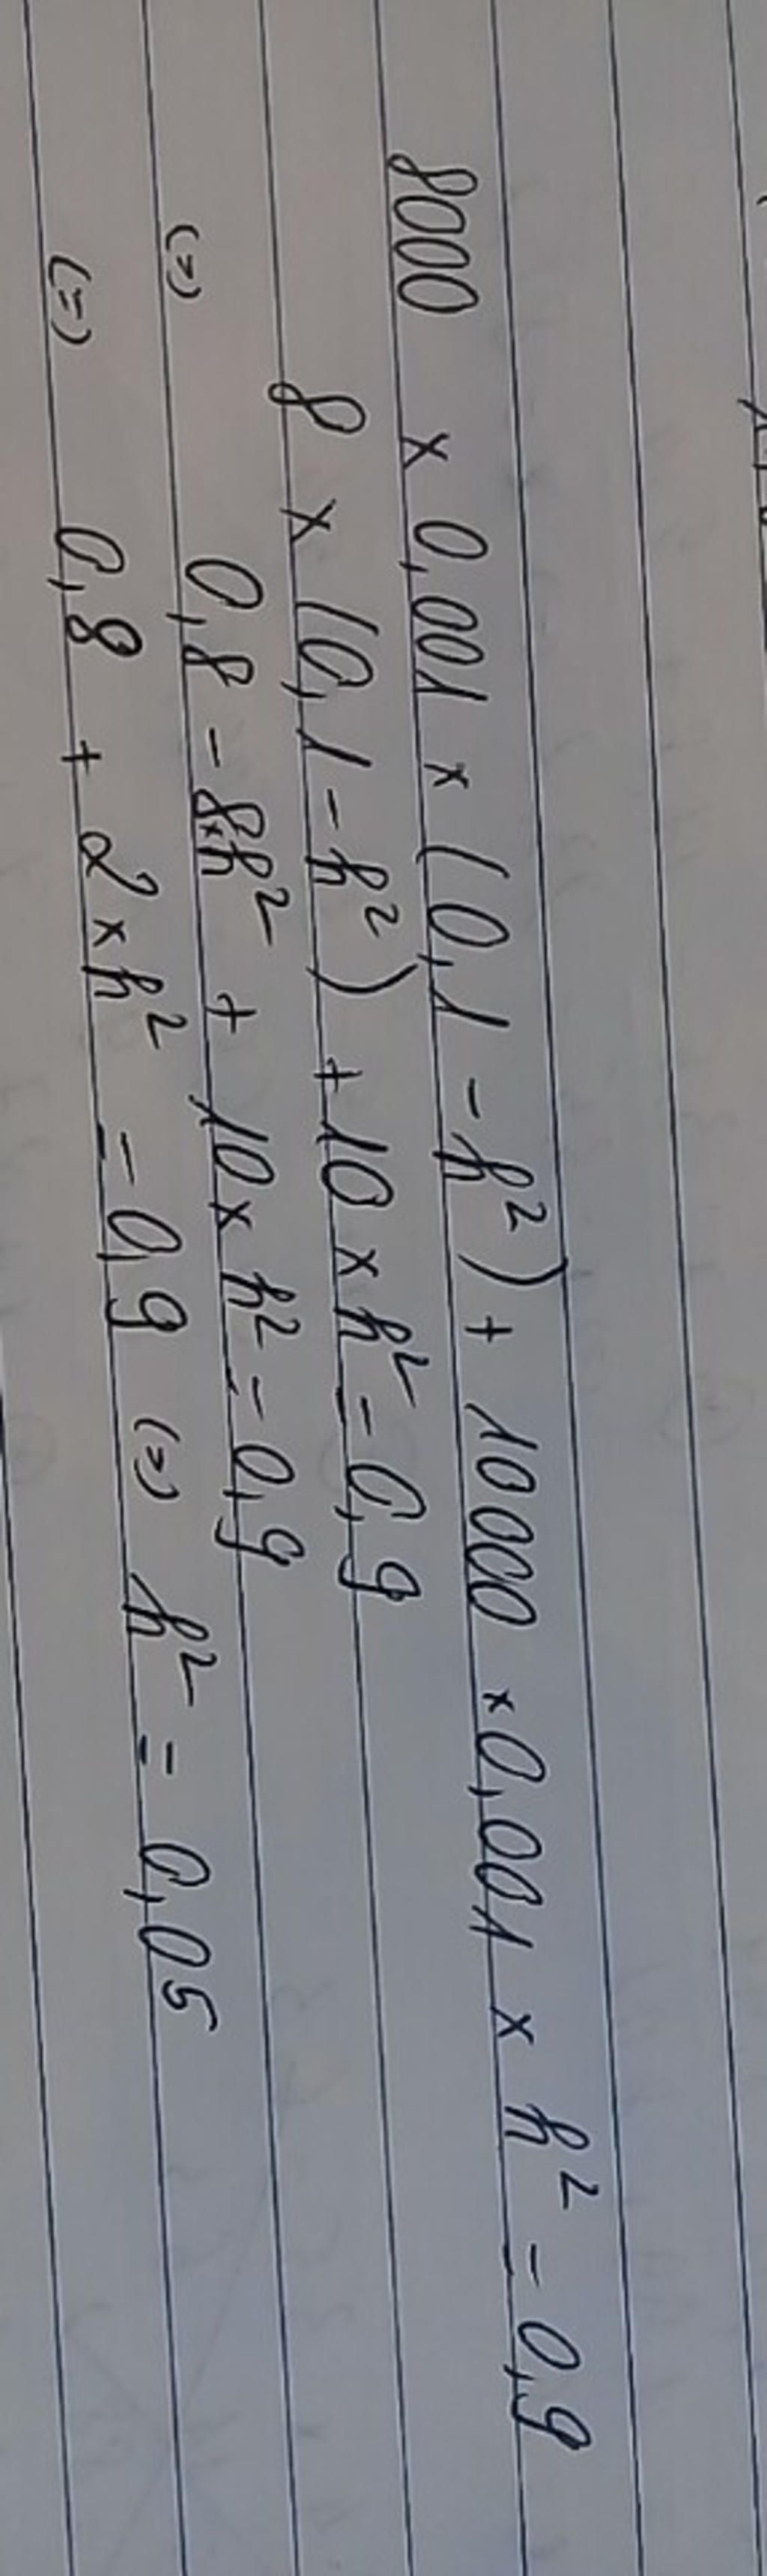 8000 x 0,001 x (0,1 - h²) + 10000 x 0,001 x h² = 0,9
8 x (0,1 - h²) + 10 x h² = 0,9
(=) 0,8 - 8xh² + 10 x h² = 0,9
(=) 0,8 + 2 x h² = 0,9 (=) h² = 0,05